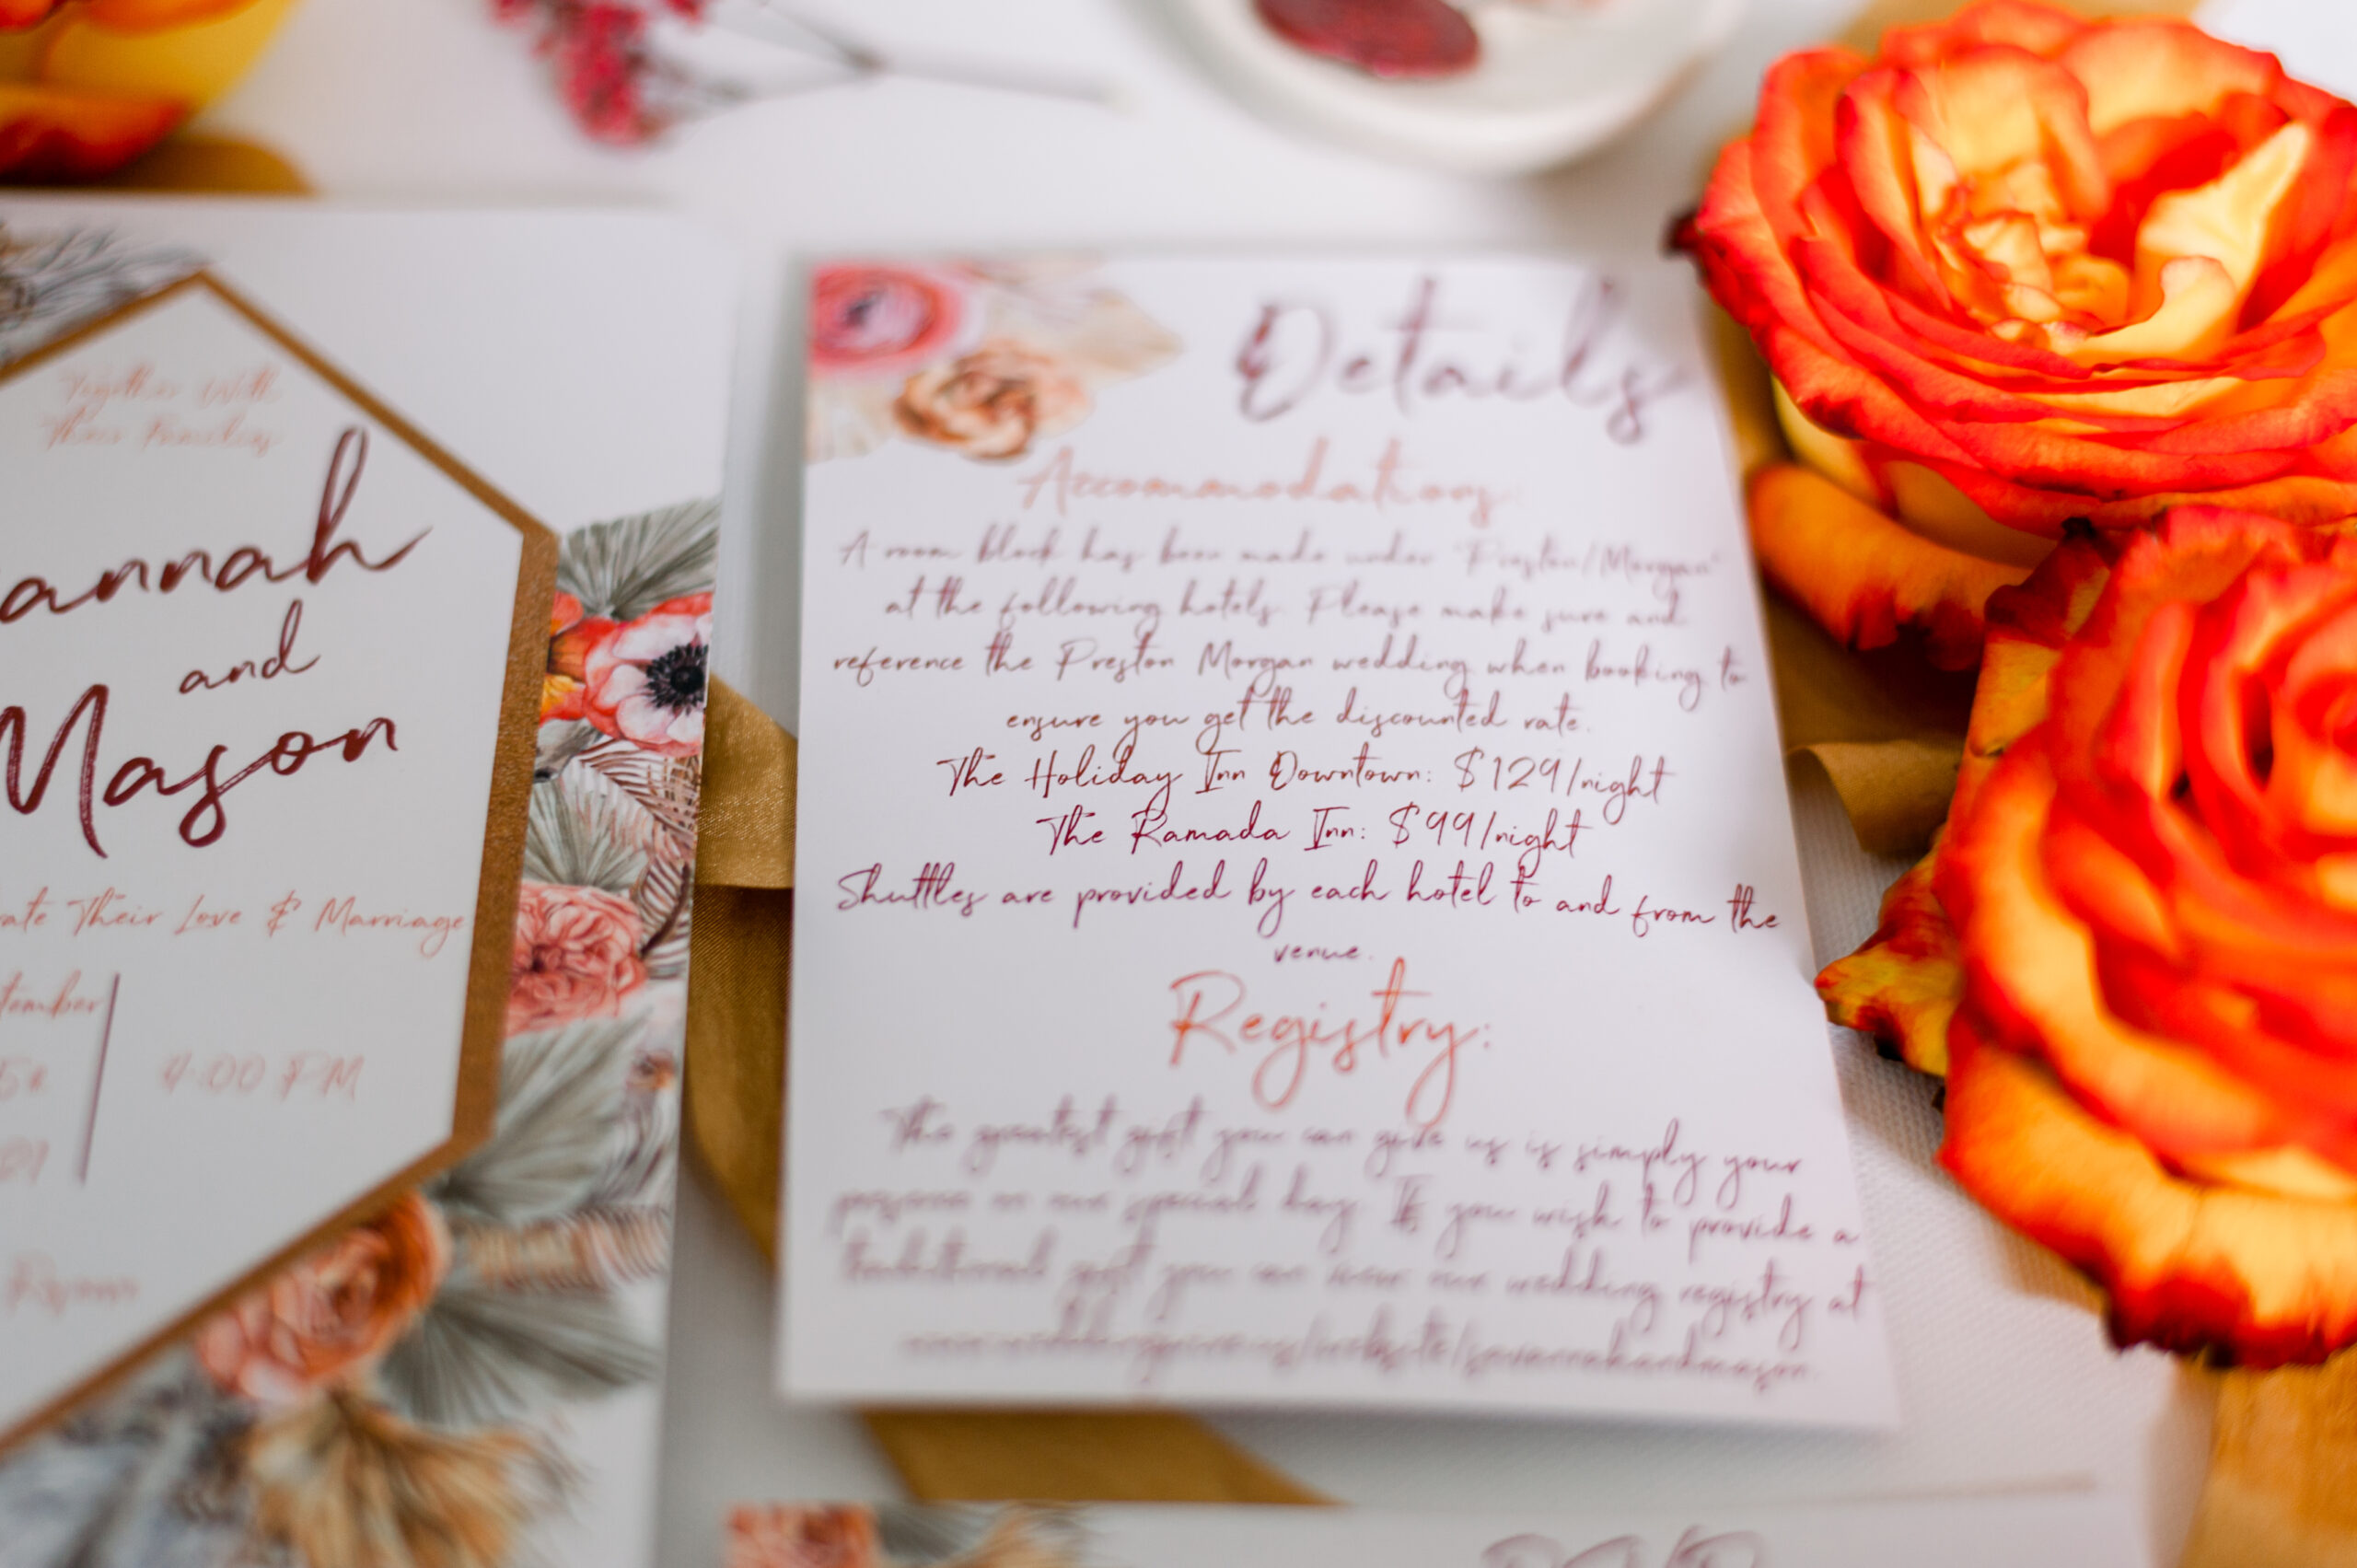 Together With
Their Families
annah
and
Mason
ate Their Love & Marriage
tember
4:00 PM
Details
Accommodations:
A room block has been made under "Preston/Morgan"
at the following hotels. Please make sure and
reference the Preston Morgan wedding when booking to
ensure you get the discounted rate.
The Holiday Inn Downtown: $129/night
The Ramada Inn: $99/night
Shuttles are provided by each hotel to and from the
venue.
Registry:
The greatest gift you can give us is simply your
on our special day. If you wish to provide a
traditional gift you can view our wedding registry at
RSVP